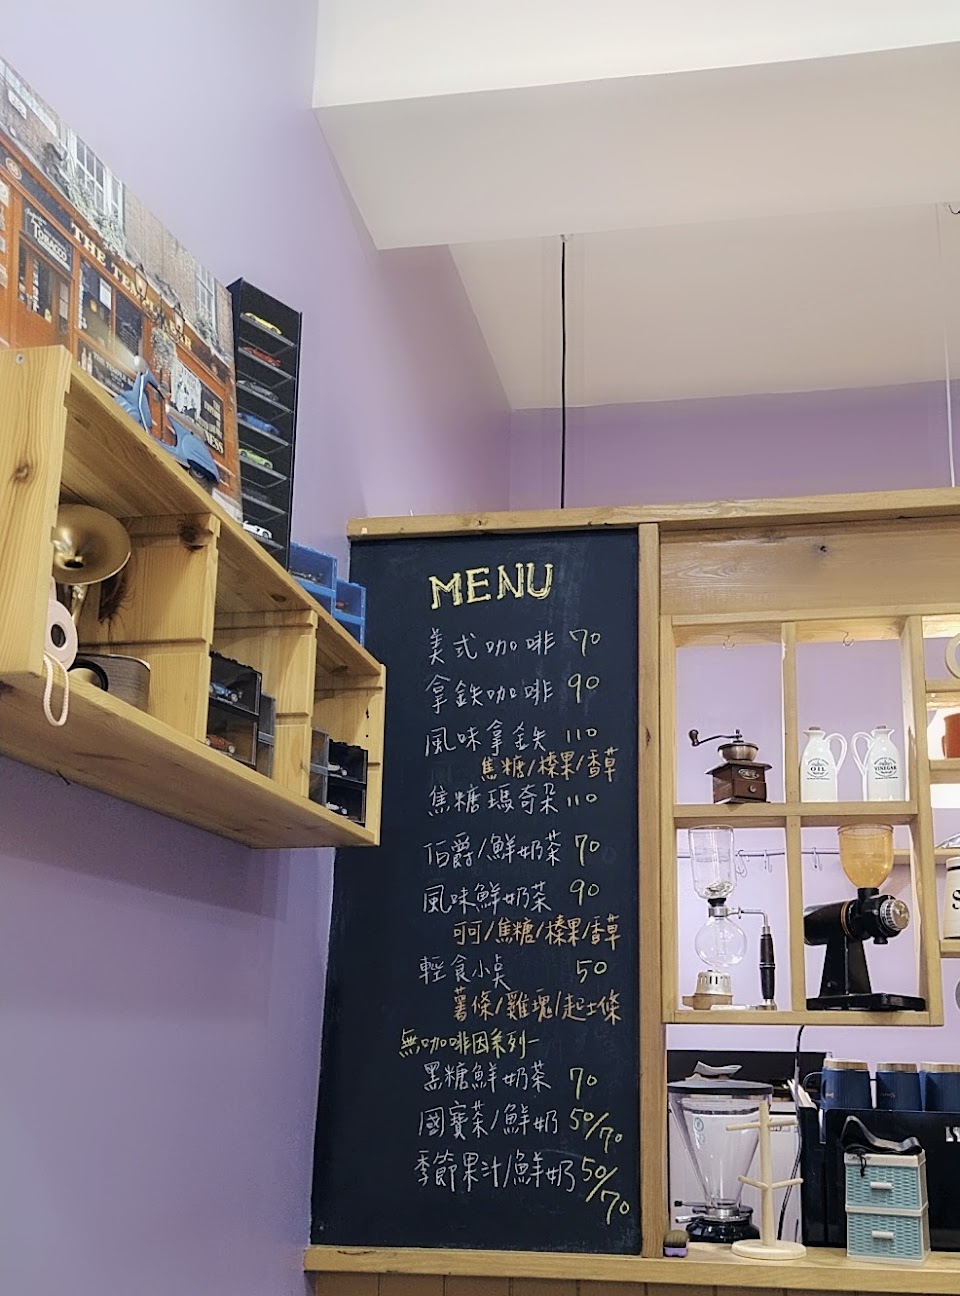 TOBACCO
THE TEMPLE BAR
MENU
美式咖啡 70
拿鉄咖啡 90
風味拿鉄 110
焦糖/榛果/香草
焦糖瑪奇朵 110
伯爵/鮮奶茶 70
風味鮮奶茶 90
可可/焦糖/榛果/香草
輕食小點 50
薯條/雞塊/起士條
無咖啡因系列-
黑糖鮮奶茶 70
國寶茶/鮮奶 50/70
季節果汁/鮮奶 50/70
OIL
VINEGAR